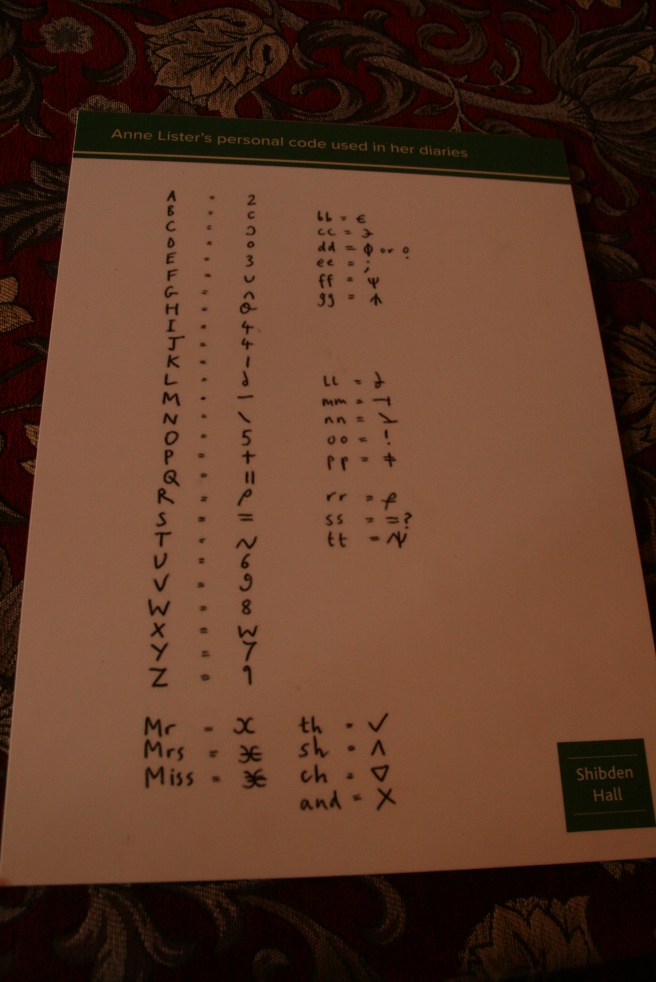 Anne Lister's personal code used in her diaries
A = 2
B = c
C = ɔ
D = o
E = 3
F = ∪
G = ∩
H = Θ
I = 4
J = 4
K = ı
L = ∂
M = –
N = \
O = 5
P = +
Q = ıı
R = ρ
S = =
T = ~
U = 6
V = 9
W = 8
X = w
Y = 7
Z = 9
bb = €
cc =
dd = ϕ or
ee = ;
ff = ψ
gg =
LL =
mm =
nn =
oo = !
pp = ‡
rr =
ss = =?
tt =
Mr = x
Mrs = ӿ
Miss =
th = ✓
sh = ∧
ch = ▽
and = X
Shibden
Hall